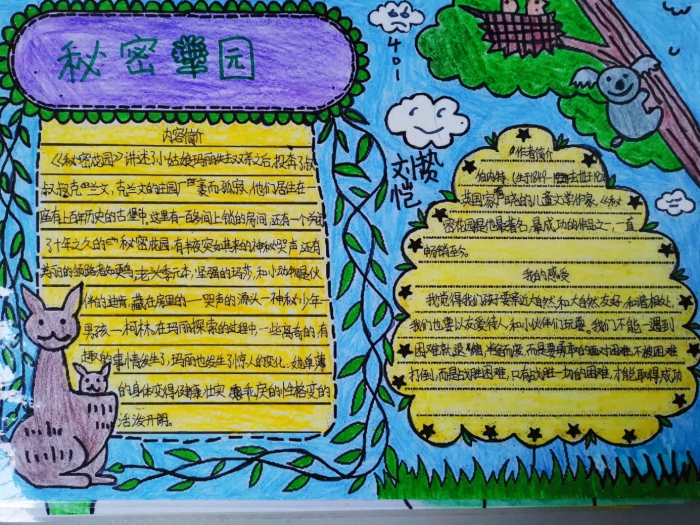 秘密花园
401
文恺
内容简介
《秘密花园》讲述了小姑娘玛丽失去双亲之后,投奔了叔
叔克兰文,克兰文的庄园广而孤寂,他们居住在一
座有上百年历史的古堡中,这里有一百多间上锁的房间,还有一个关闭
了十年之久的秘密花园,有半夜突如其来的神秘哭声,还有
美丽的领路者知更鸟,老头季元本,坚强的玛莎,和小动物是伙
伴的迪肯,藏在房里的一哭声的源头一神秘少年
男孩一柯林,在玛丽探索的过程中一些离奇的有
趣的事情发生了,玛丽也发生了惊人的变化,她单薄
的身体变得健康壮实,乖戾的性格变的
活泼开朗。
作者简介
伯内特(生于1849
英国家晓的儿童文学作家,《秘
密花园》是他最著名,最成功的作品之一,直
畅销至今。
我的感受
我觉得我们孩子要亲近大自然,和大自然友好和谐相处,
我们也要以友爱待人,和小伙伴们玩耍,我们不能一遇到
困难就退缩,半途而废,而是要勇敢的面对困难,不被困难
打倒,而是战胜困难,只有战胜一切的困难,才能取得成功